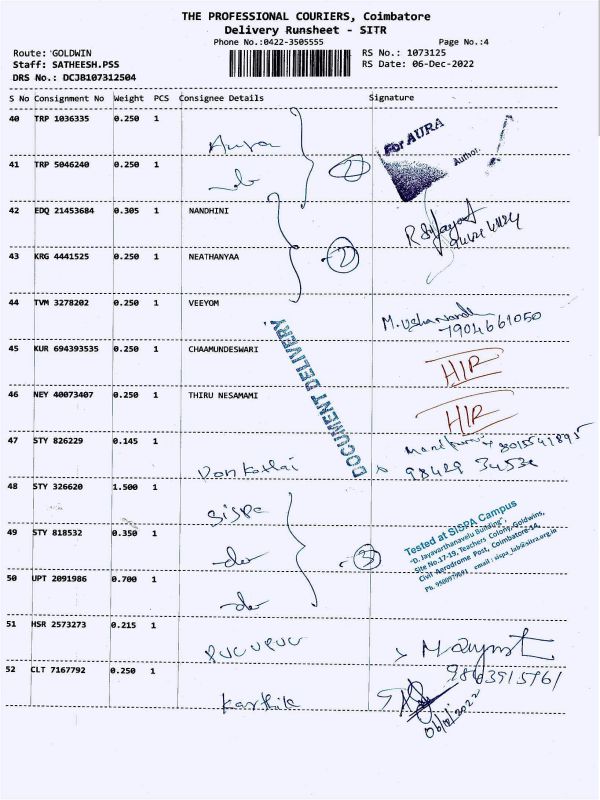 THE PROFESSIONAL COURIERS, Coimbatore
Delivery Runsheet - SITR
Phone No.:0422-3505555 Page No.:4
Route: GOLDWIN RS No.: 1073125
Staff: SATHEESH.PSS RS Date: 06-Dec-2022
DRS No.: DCJB107312504
S No Consignment No Weight PCS Consignee Details Signature
40 TRP 1036335 0.250 1
Aura For AURA
Author.
41 TRP 5046240 0.250 1
do 2
42 EDQ 21453684 0.305 1 NANDHINI
43 KRG 4441525 0.250 1 NEATHANYAA
2
44 TVM 3278202 0.250 1 VEEYOM
7904661050
DOCUMENT DELIVERY
45 KUR 694393535 0.250 1 CHAAMUNDESWARI
HIR
46 NEY 40073407 0.250 1 THIRU NESAMAMI
HIR
47 STY 826229 0.145 1
48 STY 326620 1.500 1
Sispa
Tested at SISPA Campus
"D. Jayavarthanavelu Building",
Site No.17-19, Teachers Colony, Goldwins,
Civil Aerodrome Post, Coimbatore-14.
49 STY 818532 0.350 1
do 3
50 UPT 2091986 0.700 1
do
51 HSR 2573273 0.215 1
52 CLT 7167792 0.250 1
Karthik